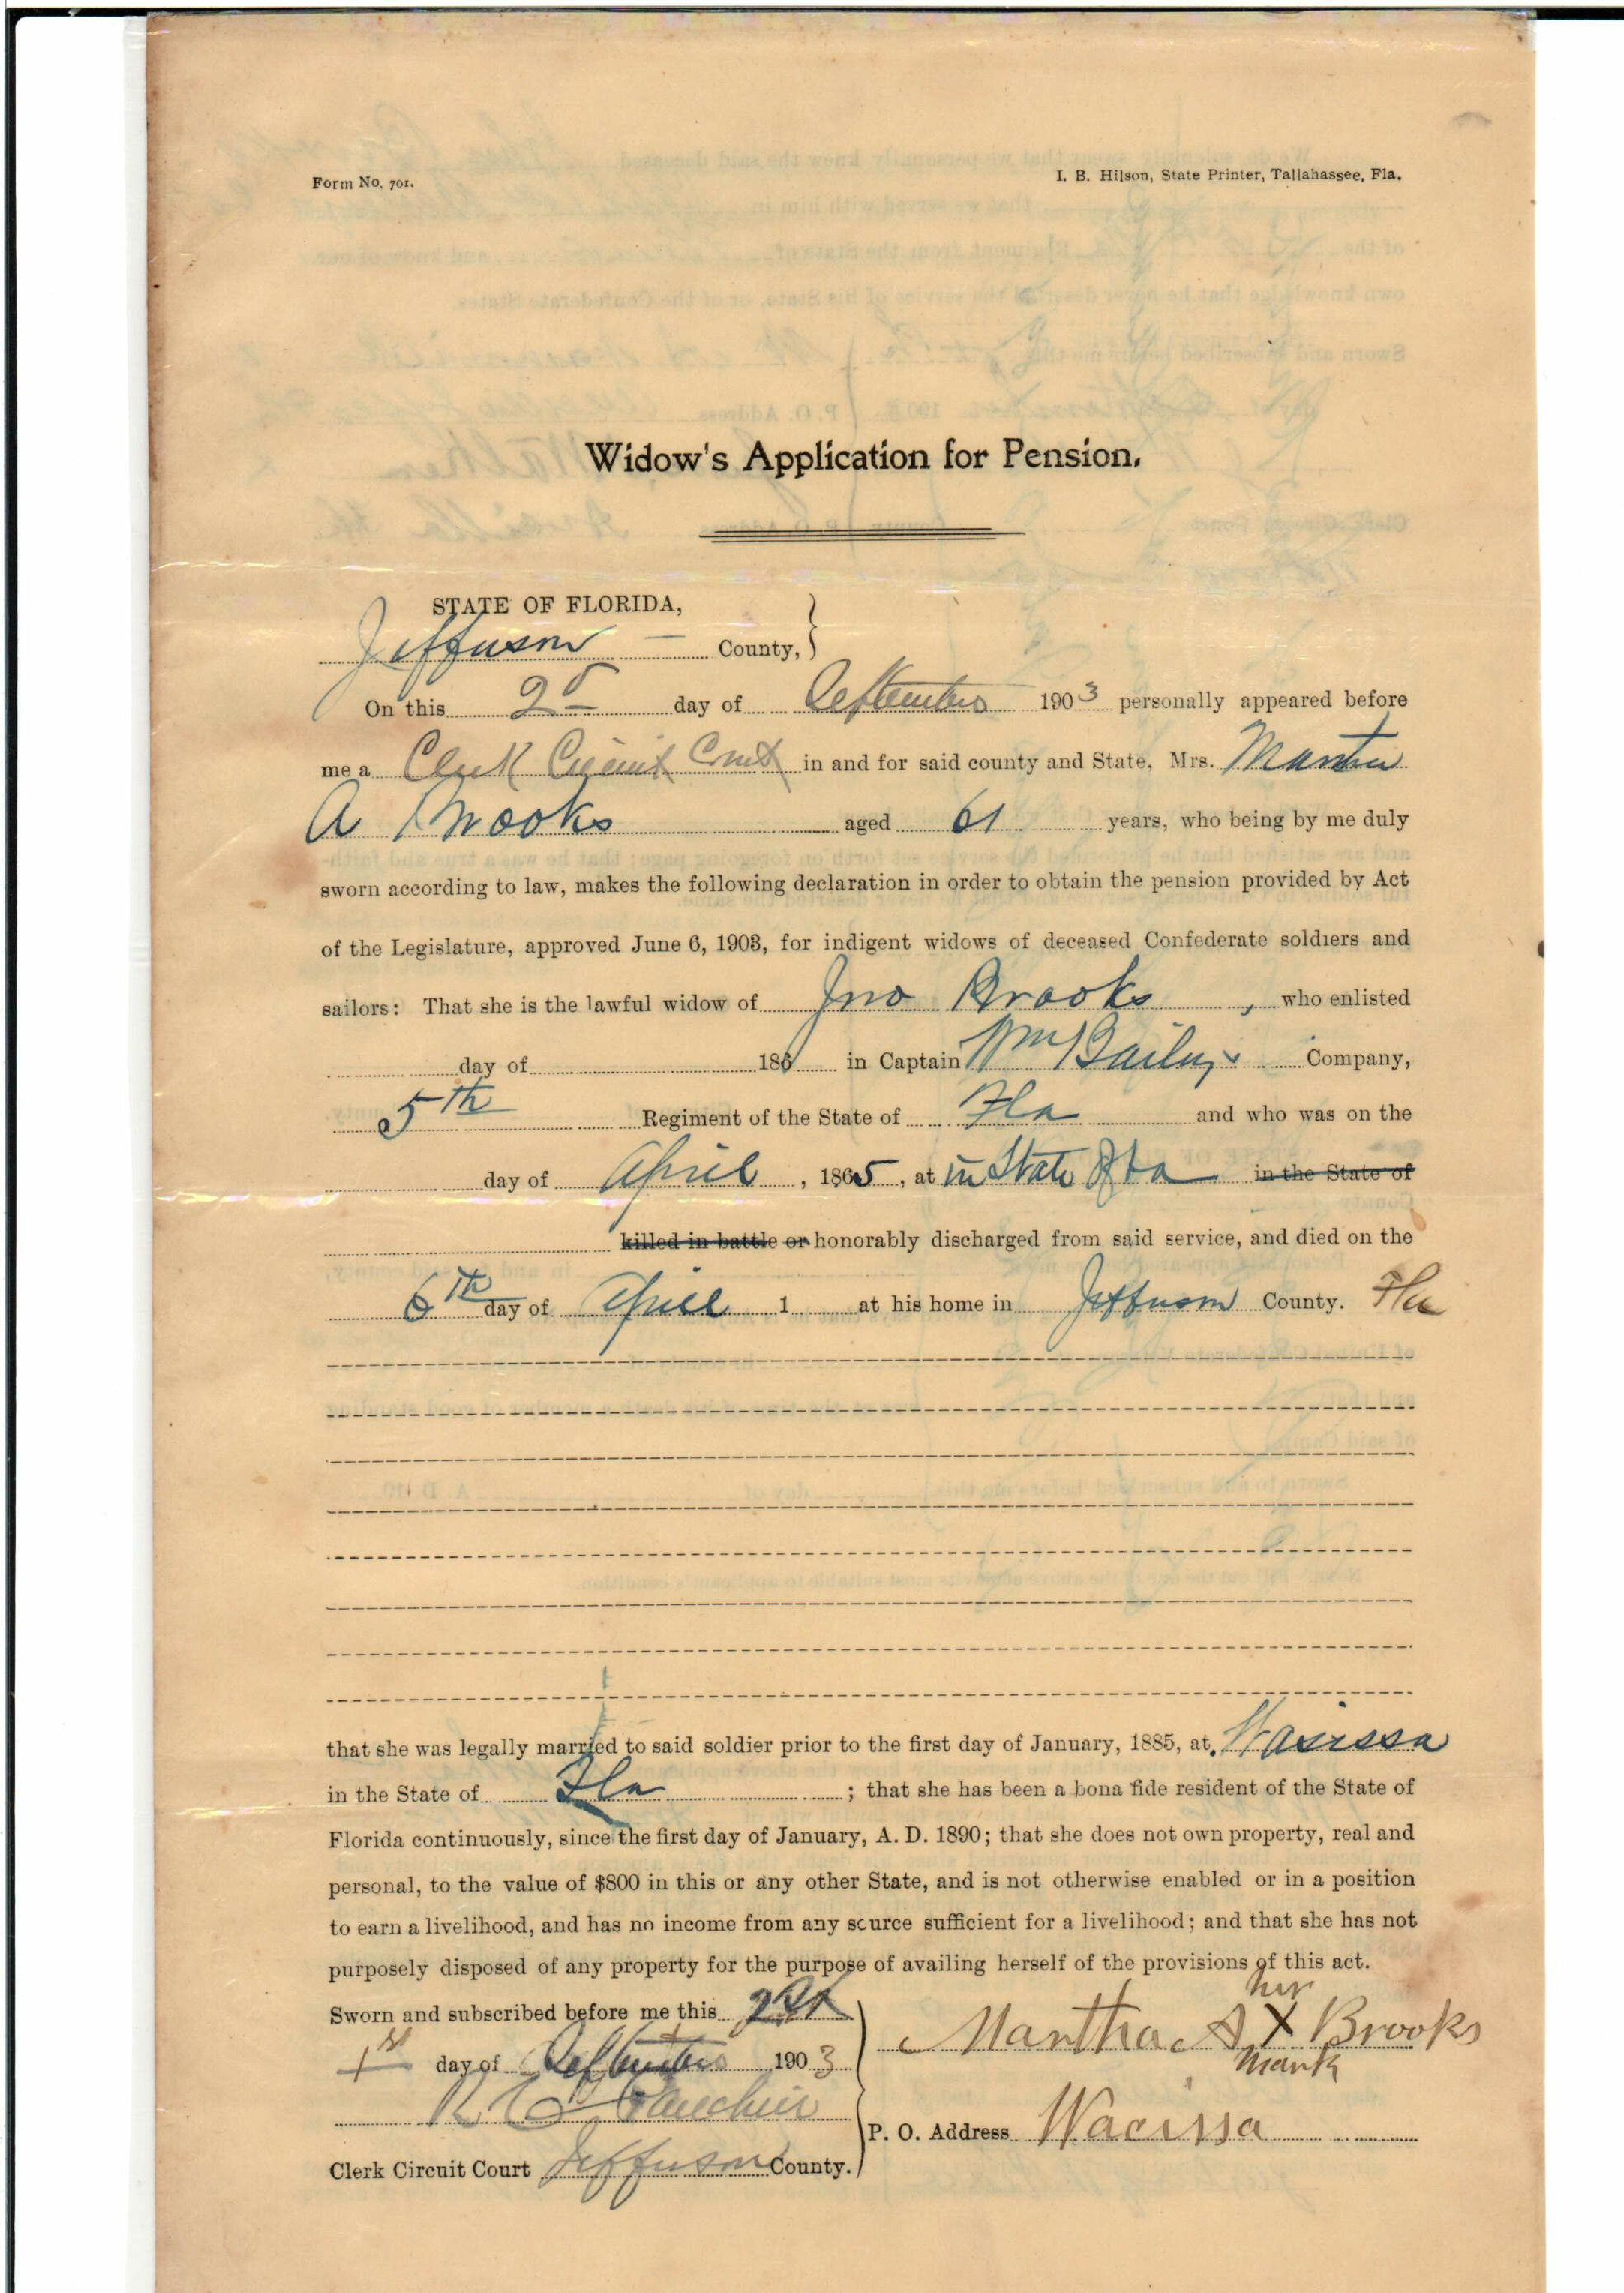 Form No. 701.
I. B. Hilson, State Printer, Tallahassee, Fla.
Widow's Application for Pension.
STATE OF FLORIDA,
Jefferson County,
On this 2d day of September 1903 personally appeared before
me a Clerk Circuit Court in and for said county and State, Mrs. Martha
A Brooks aged 61 years, who being by me duly
sworn according to law, makes the following declaration in order to obtain the pension provided by Act
of the Legislature, approved June 6, 1903, for indigent widows of deceased Confederate soldiers and
sailors: That she is the lawful widow of Jno Brooks, who enlisted
day of 186 in Captain Wm Baileys Company,
5th Regiment of the State of Fla and who was on the
day of April, 1865, at in State in the State of
killed in battle or honorably discharged from said service, and died on the
6th day of April 1 at his home in Jefferson County. Fla
that she was legally married to said soldier prior to the first day of January, 1885, at Wacissa
in the State of Fla; that she has been a bona fide resident of the State of
Florida continuously, since the first day of January, A. D. 1890; that she does not own property, real and
personal, to the value of $800 in this or any other State, and is not otherwise enabled or in a position
to earn a livelihood, and has no income from any source sufficient for a livelihood; and that she has not
purposely disposed of any property for the purpose of availing herself of the provisions of this act.
Sworn and subscribed before me this
1st day of September 1903
her
Martha A X Brooks
mark
P. O. Address Wacissa
Clerk Circuit Court Jefferson County.